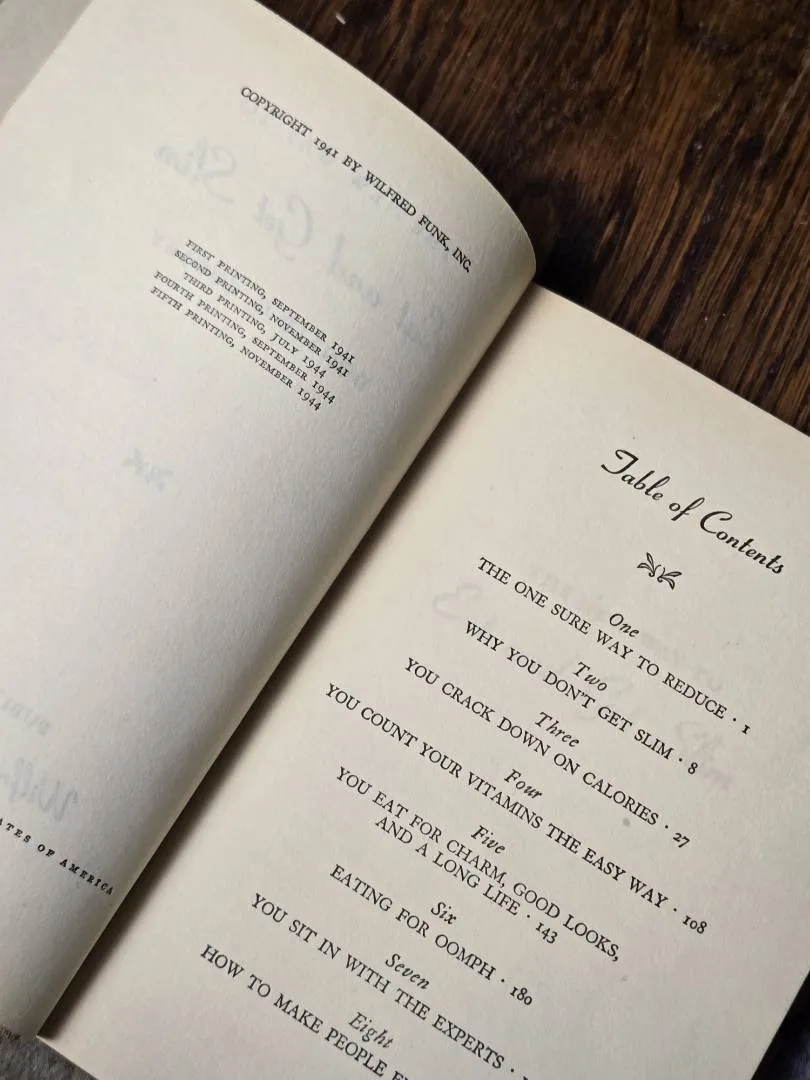 COPYRIGHT 1941 BY WILFRED FUNK, INC.
FIRST PRINTING, SEPTEMBER 1941
SECOND PRINTING, NOVEMBER 1941
THIRD PRINTING, JULY 1944
FOURTH PRINTING, SEPTEMBER 1944
FIFTH PRINTING, NOVEMBER 1944
OF AMERICA
Table of Contents
One
THE ONE SURE WAY TO REDUCE · 1
Two
WHY YOU DON'T GET SLIM · 8
Three
YOU CRACK DOWN ON CALORIES · 27
Four
YOU COUNT YOUR VITAMINS THE EASY WAY · 108
Five
YOU EAT FOR CHARM, GOOD LOOKS,
AND A LONG LIFE · 143
Six
EATING FOR OOMPH · 180
Seven
YOU SIT IN WITH THE EXPERTS ·
Eight
HOW TO MAKE PEOPLE